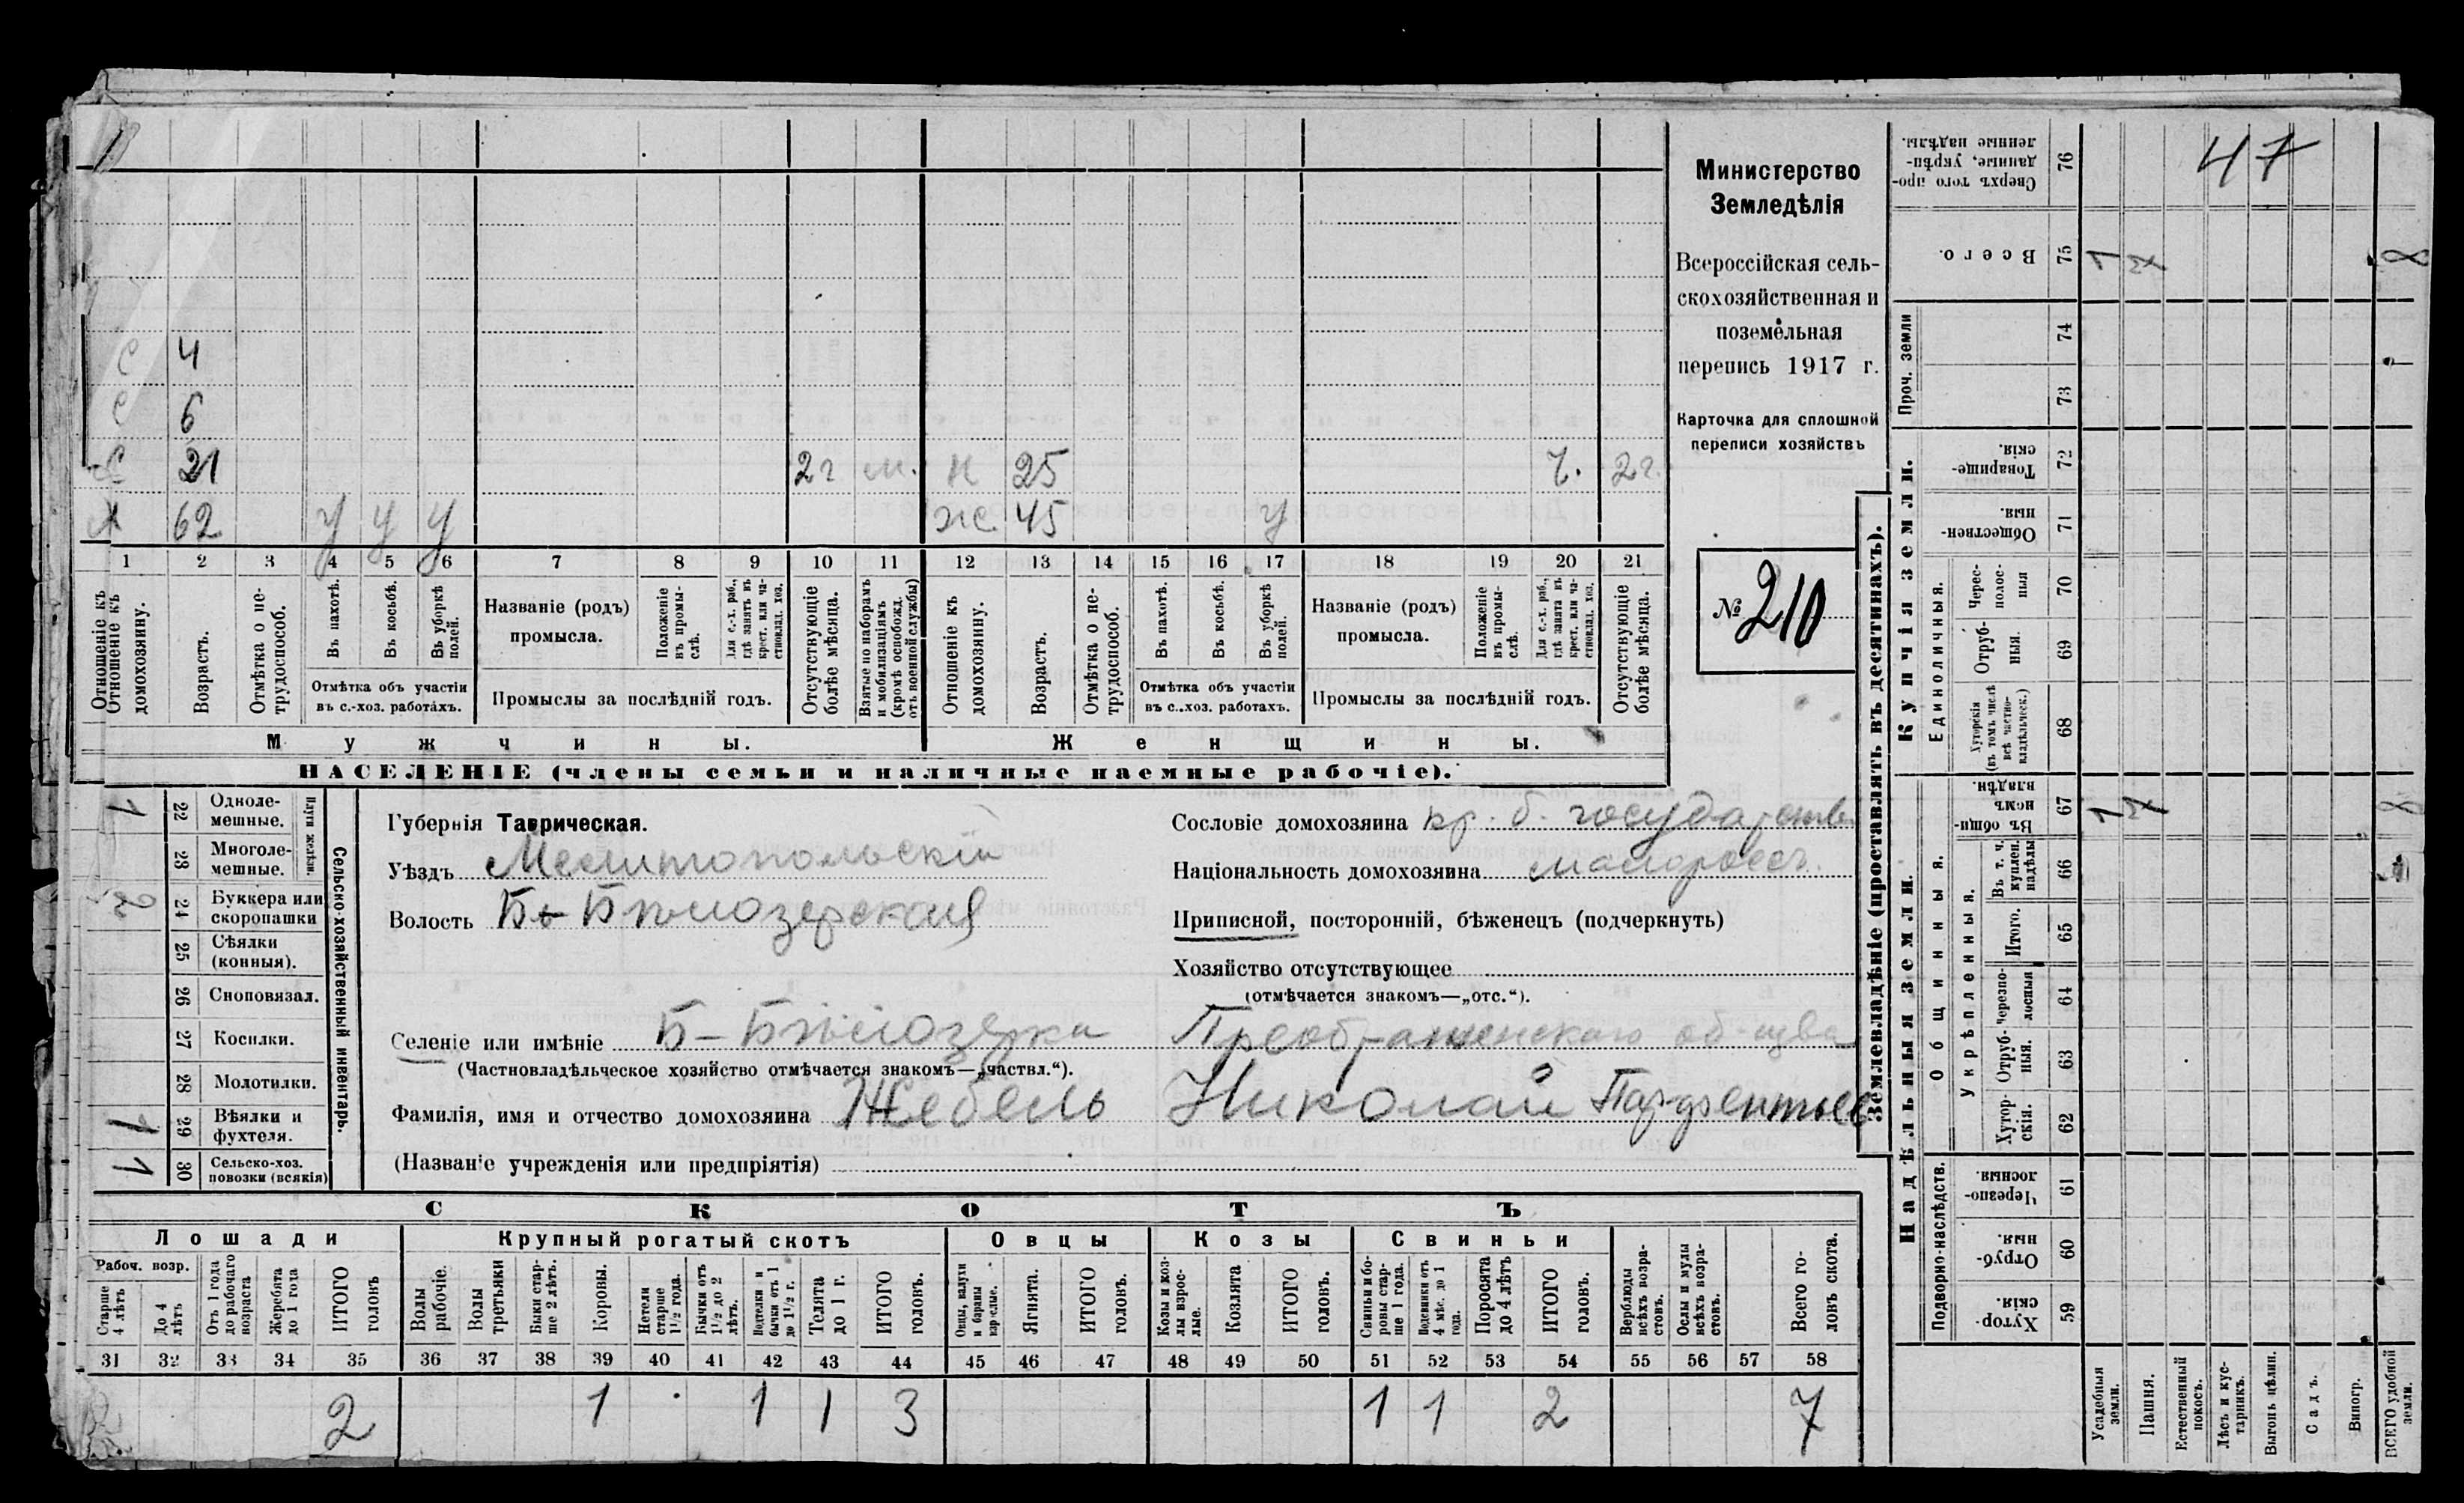 47
Министерство
Земледѣлія
Всероссійская сель-
скохозяйственная и
поземельная
перепись 1917 г.
Карточка для сплошной
переписи хозяйствъ
№ 210
С 4
С 6
С 21 2г м. Н 25 Ч. 2г.
Х 62 У У У Ж. 45 У
1 2 3 4 5 6 7 8 9 10 11 12 13 14 15 16 17 18 19 20 21
Отношеніе къ домохозяину.
Возрастъ.
Отмѣтка о не-трудоспособ.
Въ пахотѣ.
Въ косьбѣ.
Въ уборкѣ полей.
Отмѣтка объ участіи въ с.-хоз. работахъ.
Названіе (родъ) промысла.
Положеніе въ промы-слѣ.
Для с.-х. раб., гдѣ занятъ въ крест. или ча-стновлад. хоз.
Промыслы за послѣдній годъ.
Отсутствующіе болѣе мѣсяца.
Взятые по наборамъ и мобилизаціямъ (кромѣ освобожд. отъ военной службы)
Отношеніе къ домохозяину.
Возрастъ.
Отмѣтка о не-трудоспособ.
Въ пахотѣ.
Въ косьбѣ.
Въ уборкѣ полей.
Отмѣтка объ участіи въ с.-хоз. работахъ.
Названіе (родъ) промысла.
Положеніе въ промы-слѣ.
Для с.-х. раб., гдѣ занята въ крест. или ча-стновлад. хоз.
Промыслы за послѣдній годъ.
Отсутствующіе болѣе мѣсяца.
Мужчины. Женщины.
НАСЕЛЕНІЕ (члены семьи и наличные наемные рабочіе).
Сельско-хозяйственный инвентарь.
Плуги желѣзн.
1 22 Одноле-мешные.
23 Многоле-мешные.
2 24 Буккера или скоропашки
25 Сѣялки (конныя).
26 Сноповязал.
27 Косилки.
28 Молотилки.
1 29 Вѣялки и фухтеля.
1 30 Сельско-хоз. повозки (всякія)
Губернія Таврическая.
Уѣздъ Мелитопольскій
Волость Б-Бѣлозерская
Селеніе или имѣніе Б-Бѣлозерка Преображенскаго общва
(Частновладѣльческое хозяйство отмѣчается знакомъ—„частвл.“).
Фамилія, имя и отчество домохозяина Жебель Николай Парфентьев
(Названіе учрежденія или предпріятія)
Сословіе домохозяина кр. б. государств
Національность домохозяина малоросс.
Приписной, посторонній, бѣженецъ (подчеркнуть)
Хозяйство отсутствующее
(отмѣчается знакомъ—„отс.“).
СКОТЪ
Лошади Крупный рогатый скотъ Овцы Козы Свиньи
Рабоч. возр.
Старше 4 лѣтъ
До 4 лѣтъ
Отъ 1 года до рабочаго возраста
Жеребята до 1 года
ИТОГО головъ
Волы рабочіе.
Волы третьяки
Быки стар-ше 2 лѣтъ.
Коровы.
Нетели старше 1½ года.
Бычки отъ 1½ до 2 лѣтъ.
Подтелки и бычки отъ 1 до 1½ г.
Телята до 1 г.
ИТОГО головъ.
Овцы, валухи и бараны взрослые.
Ягнята.
ИТОГО головъ.
Козы и коз-лы взрос-лые.
Козлята
ИТОГО головъ.
Свиньи и бо-ровы стар-ше 1 года.
Подсвинки отъ 4 мѣс. до 1 года.
Поросята до 4 лѣтъ
ИТОГО головъ.
Верблюды всѣхъ возра-стовъ.
Ослы и мулы всѣхъ возра-стовъ.
Всего го-ловъ скота.
31 32 33 34 35 36 37 38 39 40 41 42 43 44 45 46 47 48 49 50 51 52 53 54 55 56 57 58
2 1 1 1 3 1 1 2 7
Землевладѣніе (проставлять въ десятинахъ).
Надѣльныя земли. Купчія земли. Проч. земли
Подворно-наслѣдств.
Общинныя.
Укрѣпленныя.
Единоличныя.
Сверхъ того про-данные, укрѣп-ленные надѣлы. 76
Всего. 75 1 7 8
74
73
Товарище-скія. 72
Обществен-ныя. 71
Черес-полос-ныя 70
Отруб-ныя. 69
Хуторскія (въ томъ числѣ всѣ частно-владѣльческ.) 68
Въ общи-номъ владѣн. 67 1 7 8
Въ т. ч. куплен. надѣлы 66
Итого. 65
Черезпо-лосныя 64
Отруб-ныя. 63
Хутор-скія. 62
Черезпо-лосныя 61
Отруб-ныя. 60
Хутор-скія. 59
Усадебныя земли.
Пашня.
Естественный покосъ.
Лѣсъ и кус-тарникъ.
Выгонъ цѣлин.
Садъ.
Виногр.
ВСЕГО удобной земли.